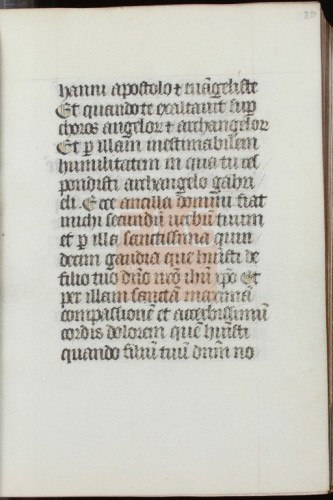 20
hanni apostolo ⁊ euãgeliste
Et quando te exaltauit sup̃
choros angeloꝝ ⁊ archangeloꝝ
Et ꝑ illam inestimabilem
humilitatem in qua tu res
pondisti archangelo gabri
eli. Ecce ancilla domini fiat
michi secundũ uerbũ tuum
et ꝑ illa sanctissima quin
decim gaudia que hũisti de
filio tuo dño nr̃o ihũ xp̃o Et
per illam sanctã maximã
compassionẽ et acerbissimũ
cordis dolorem quẽ hũisti
quando filiũ tuũ dñm no